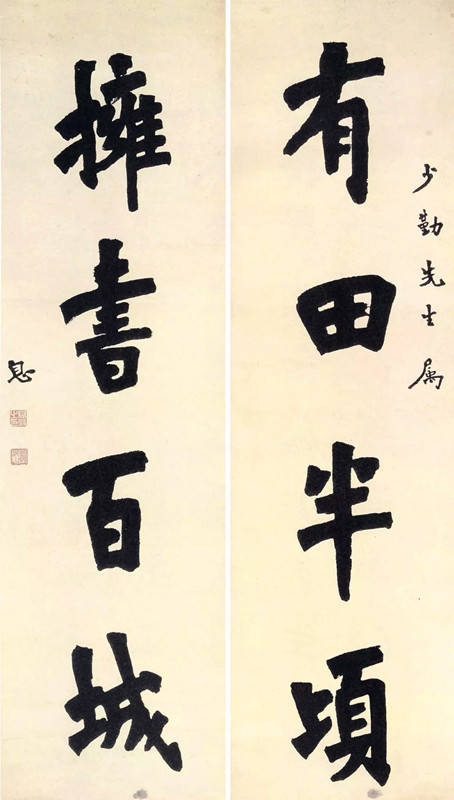 少勤先生属
有田半頃
擁書百城